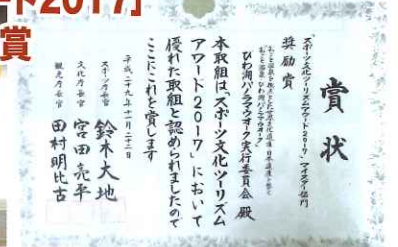 ート2017」
賞
賞状
スポーツ文化ツーリズムアワード2017 マイスター部門
奨励賞
びわ湖パノラマウオーク実行委員会 殿
本取組は「スポーツ文化ツーリズム
アワード2017」において
優れた取組と認められましたので
ここにこれを賞します
平成二十九年十一月二十二日
スポーツ庁長官 鈴木大地
文化庁長官 宮田亮平
観光庁長官 田村明比古